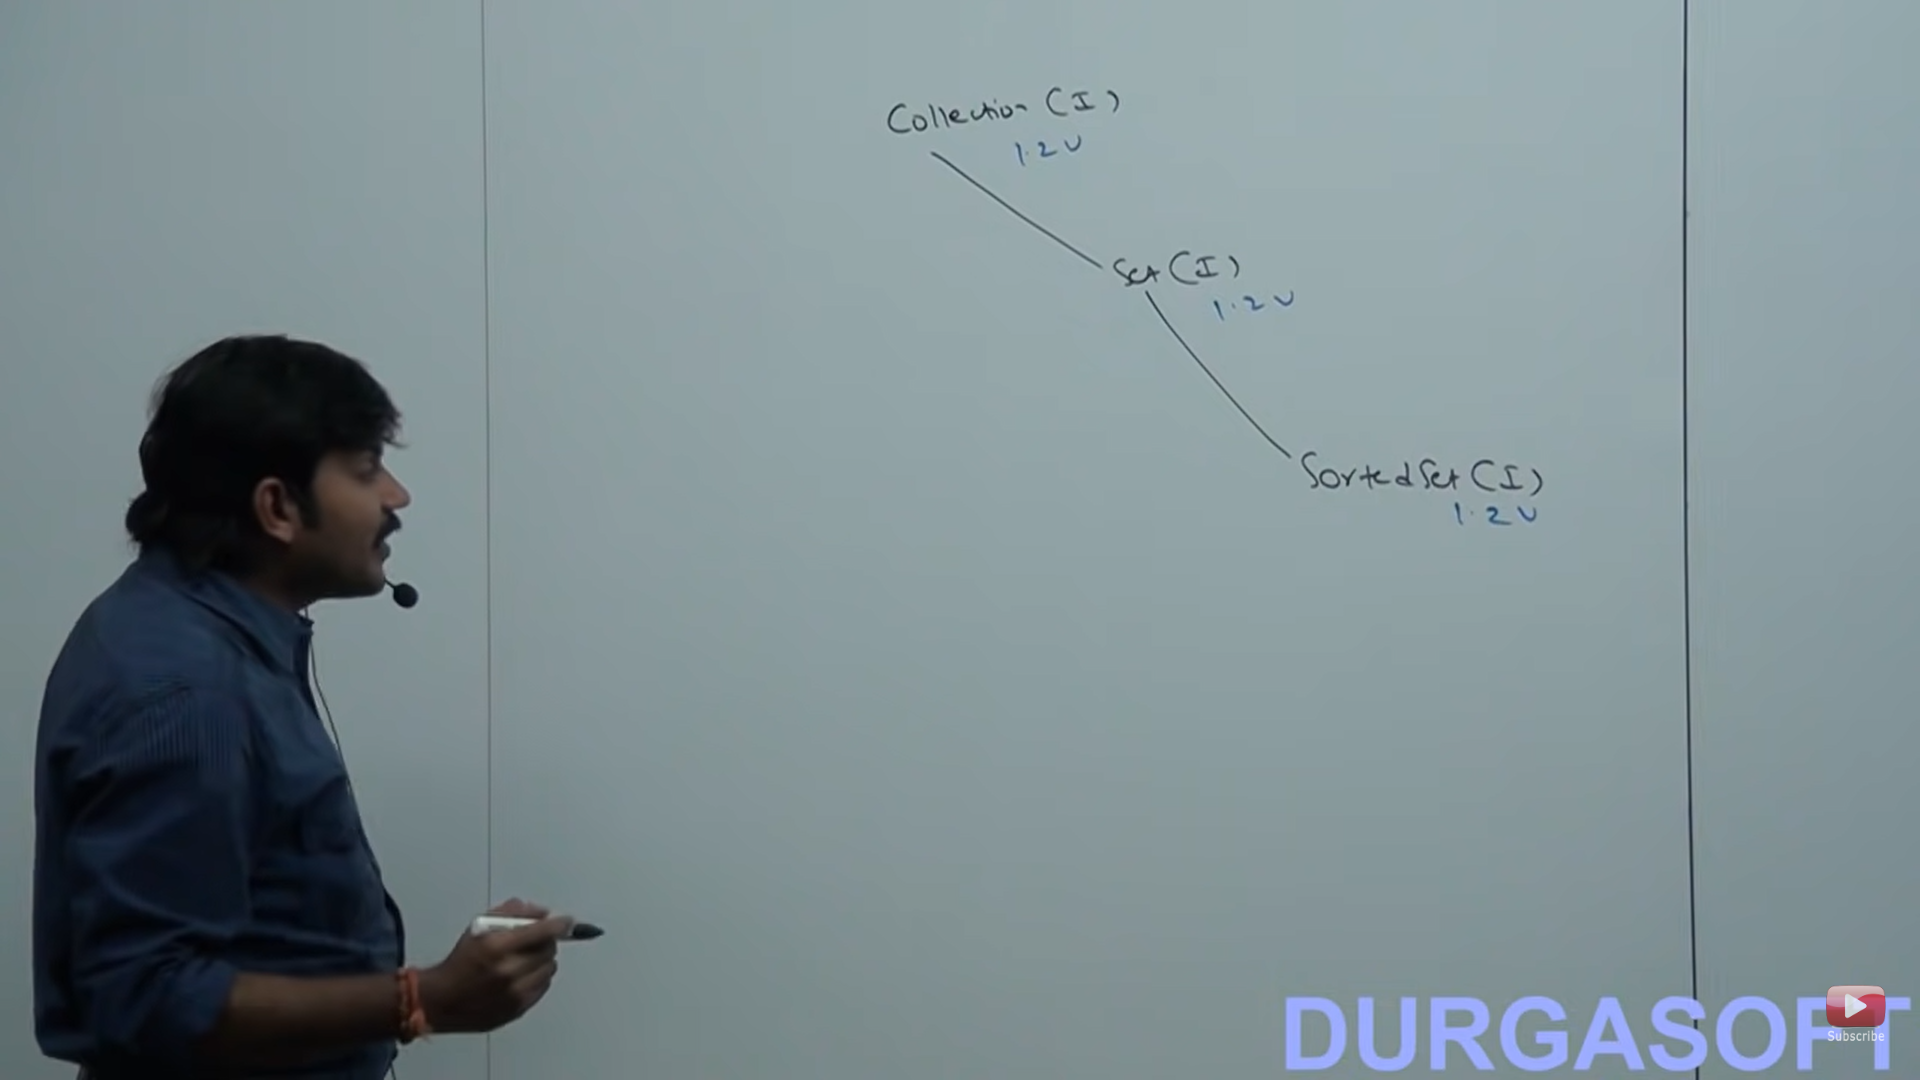 Collection (I)
1.2 v
Set (I)
1.2 v
SortedSet (I)
1.2 v
DURGASOFT
Subscribe